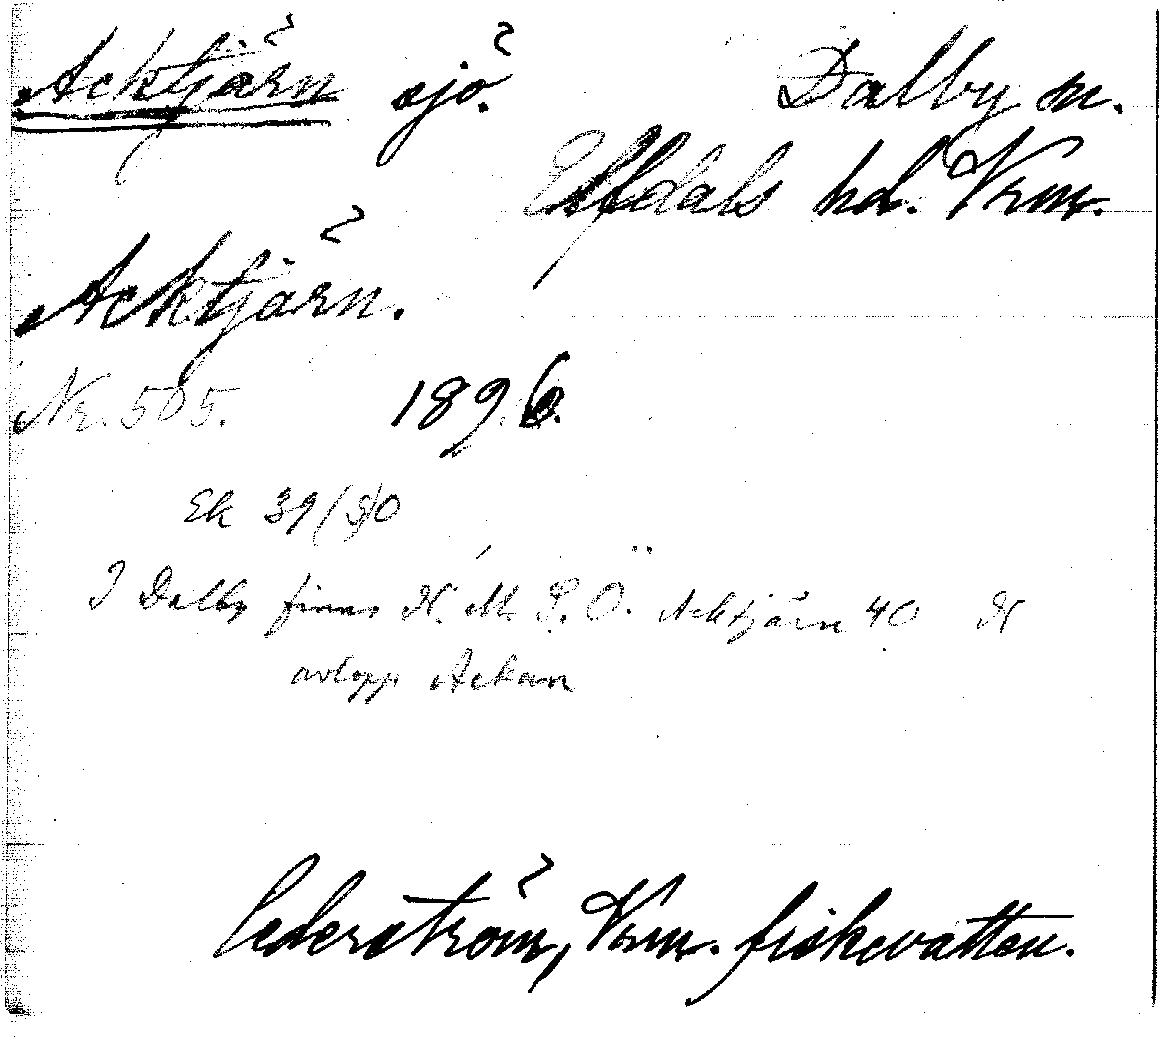 Acktjärn sjö. Dalby sn.
Elfdals hd. Vrm.
Acktjärn.
Nr. 505. 1896.
Ek 39/50
I Dalby finns N. M. S. Ö. Acktjärn 40 N
avlopp Ackan
Cederström, Vrm. fiskevatten.